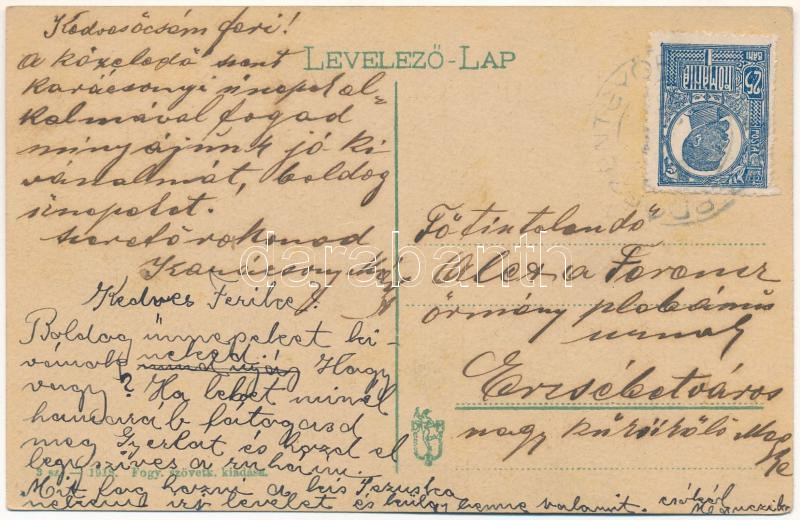 Kedvesöcsém feri!
A közeledö szent
karácsonyi ünepet al-
kalmával fogad
minyájunk jó ki
vánalmát, boldog
ünepeket.
szeretö rokonod
Karácsony
Kedves Ferike!
Boldog ünnepeket ki-
vánok neked mind nyáj Hogy
vagy? Ha lehet minél
hamaráb fatogasd
meg Gyerkát és hozd el
légy szíves a ruhám.
Mit fog hozni a kis Jezuska
nekem irj levelet és küldj benne valamit. csókol
LEVELEZŐ-LAP
ROMANIA
25
BANI
POSTA
Fötisztelendö
Alexa Ferencz
örmény plebánus
urnak
Erzsébetváros
nagy küküllö
3 sz. — 1918. Fogy. szövetk. kiadása.
darabanth